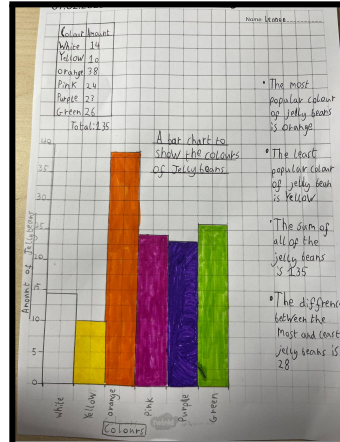 Colour Amount
White 14
Yellow 10
orange 38
Pink 24
Purple 23
Green 26
Total: 135
A bar chart to
show the colours
of Jelly beans
• The most
popular colour
of jelly beans
is orange
• The least
popular colour
of jelly bean
is Yellow
• The sum of
all of the
jelly beans
is 135
• The diffrence
between the
Most and least
jelly beans is
28
Amount of Jellybeans
40
35
15
10
5
0
white
Yellow
orange
Pink
Purple
Green
Colours
Name